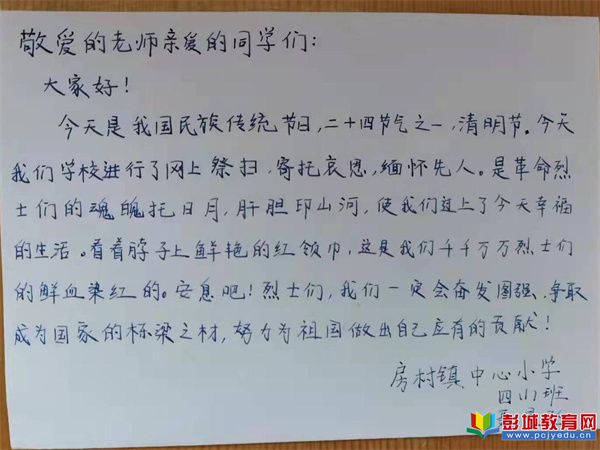 敬爱的老师亲爱的同学们：
大家好！
今天是我国民族传统节日，二十四节气之一，清明节。今天
我们学校进行了网上祭扫，寄托哀思，缅怀先人。是革命烈
士们的魂魄托日月，肝胆印山河，使我们过上了今天幸福
的生活。看着脖子上鲜艳的红领巾，这是我们千千万万烈士们
的鲜血染红的。安息吧！烈士们，我们一定会奋发图强，争取
成为国家的栋梁之材，努力为祖国做出自己应有的贡献！
房村镇中心小学
四(1)班
彭城教育网
www.pcjyedu.cn